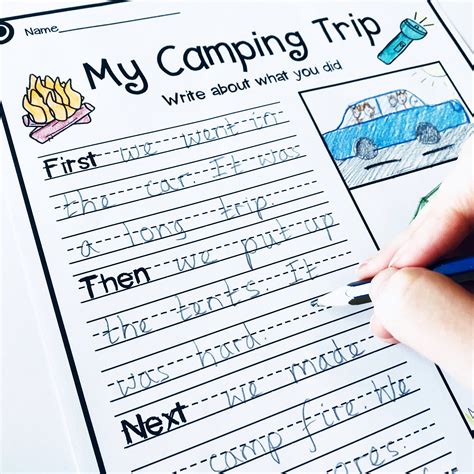 Name
My Camping Trip
Write about what you did
First we went in
the car. It was
a long trip.
Then we put up
the tents. It
was hard.
Next we made
camp fire. We